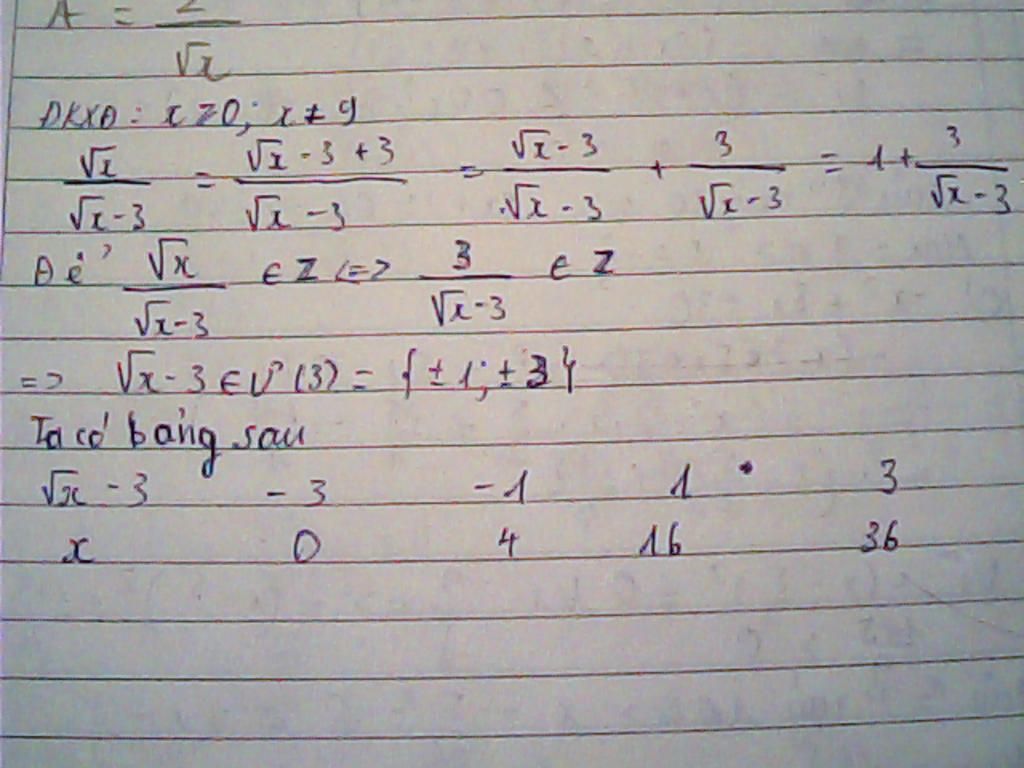 A = 2/√x
ĐKXĐ: x ≥ 0; x ≠ 9
√x/(√x - 3) = (√x - 3 + 3)/(√x - 3) = (√x - 3)/(√x - 3) + 3/(√x - 3) = 1 + 3/(√x - 3)
Để √x/(√x - 3) ∈ Z <=> 3/(√x - 3) ∈ Z
=> √x - 3 ∈ Ư(3) = {±1; ±3}
Ta có bảng sau
√x - 3 -3 -1 1 3
x 0 4 16 36